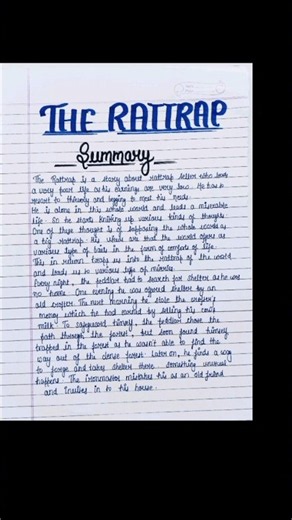 THE RATTRAP
Summary
The Rattrap is a story about rattrap seller who leads
a very poor life as his earnings are very low. He has to
resort to thievery and begging to meet his needs.
He is alone in this whole world and leads a miserable
life. So he starts knitting up various kinds of thoughts
One of these thought is of supposing the whole world as
a big rattrap. His views are that the world offers us
various type of baits in the form of comforts of life.
This in return traps us into the rattrap of the world
and leads us to various type of miseries
Every night, the peddlar had to search for shelter as he was
no home. One evening he was offered shelter by an
old crofter. The next morning he stole the crofter's
money which he had earned by selling his cow's
milk. To safeguard himself, the peddlar chose the
path through the forest, but soon found himself
trapped in the forest as he wasn't able to find the
way out of the dense forest. Later on, he finds a way
to forge and takes shelter there something unusual
happens. The ironmaster mistakes his as an old friend
and invites in to his house.